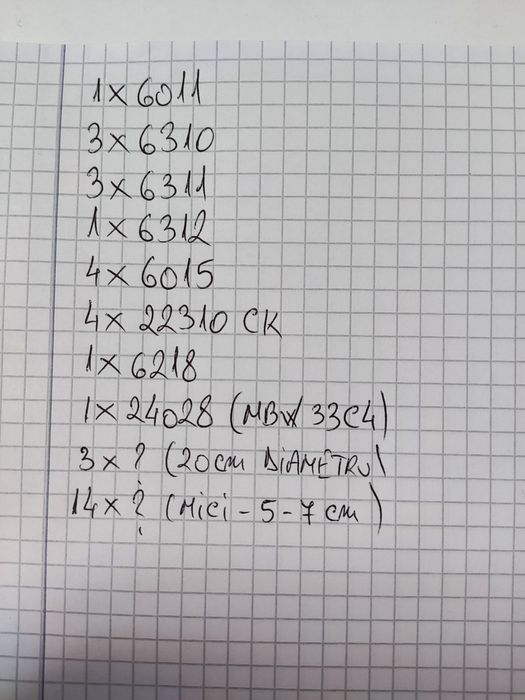 1 x 6011
3 x 6310
3 x 6311
1 x 6312
4 x 6015
4 x 22310 CK
1 x 6218
1 x 24028 (MBW 33C4)
3 x ? (20cm DIAMETRU)
14 x ? (MICI - 5 - 7 cm)